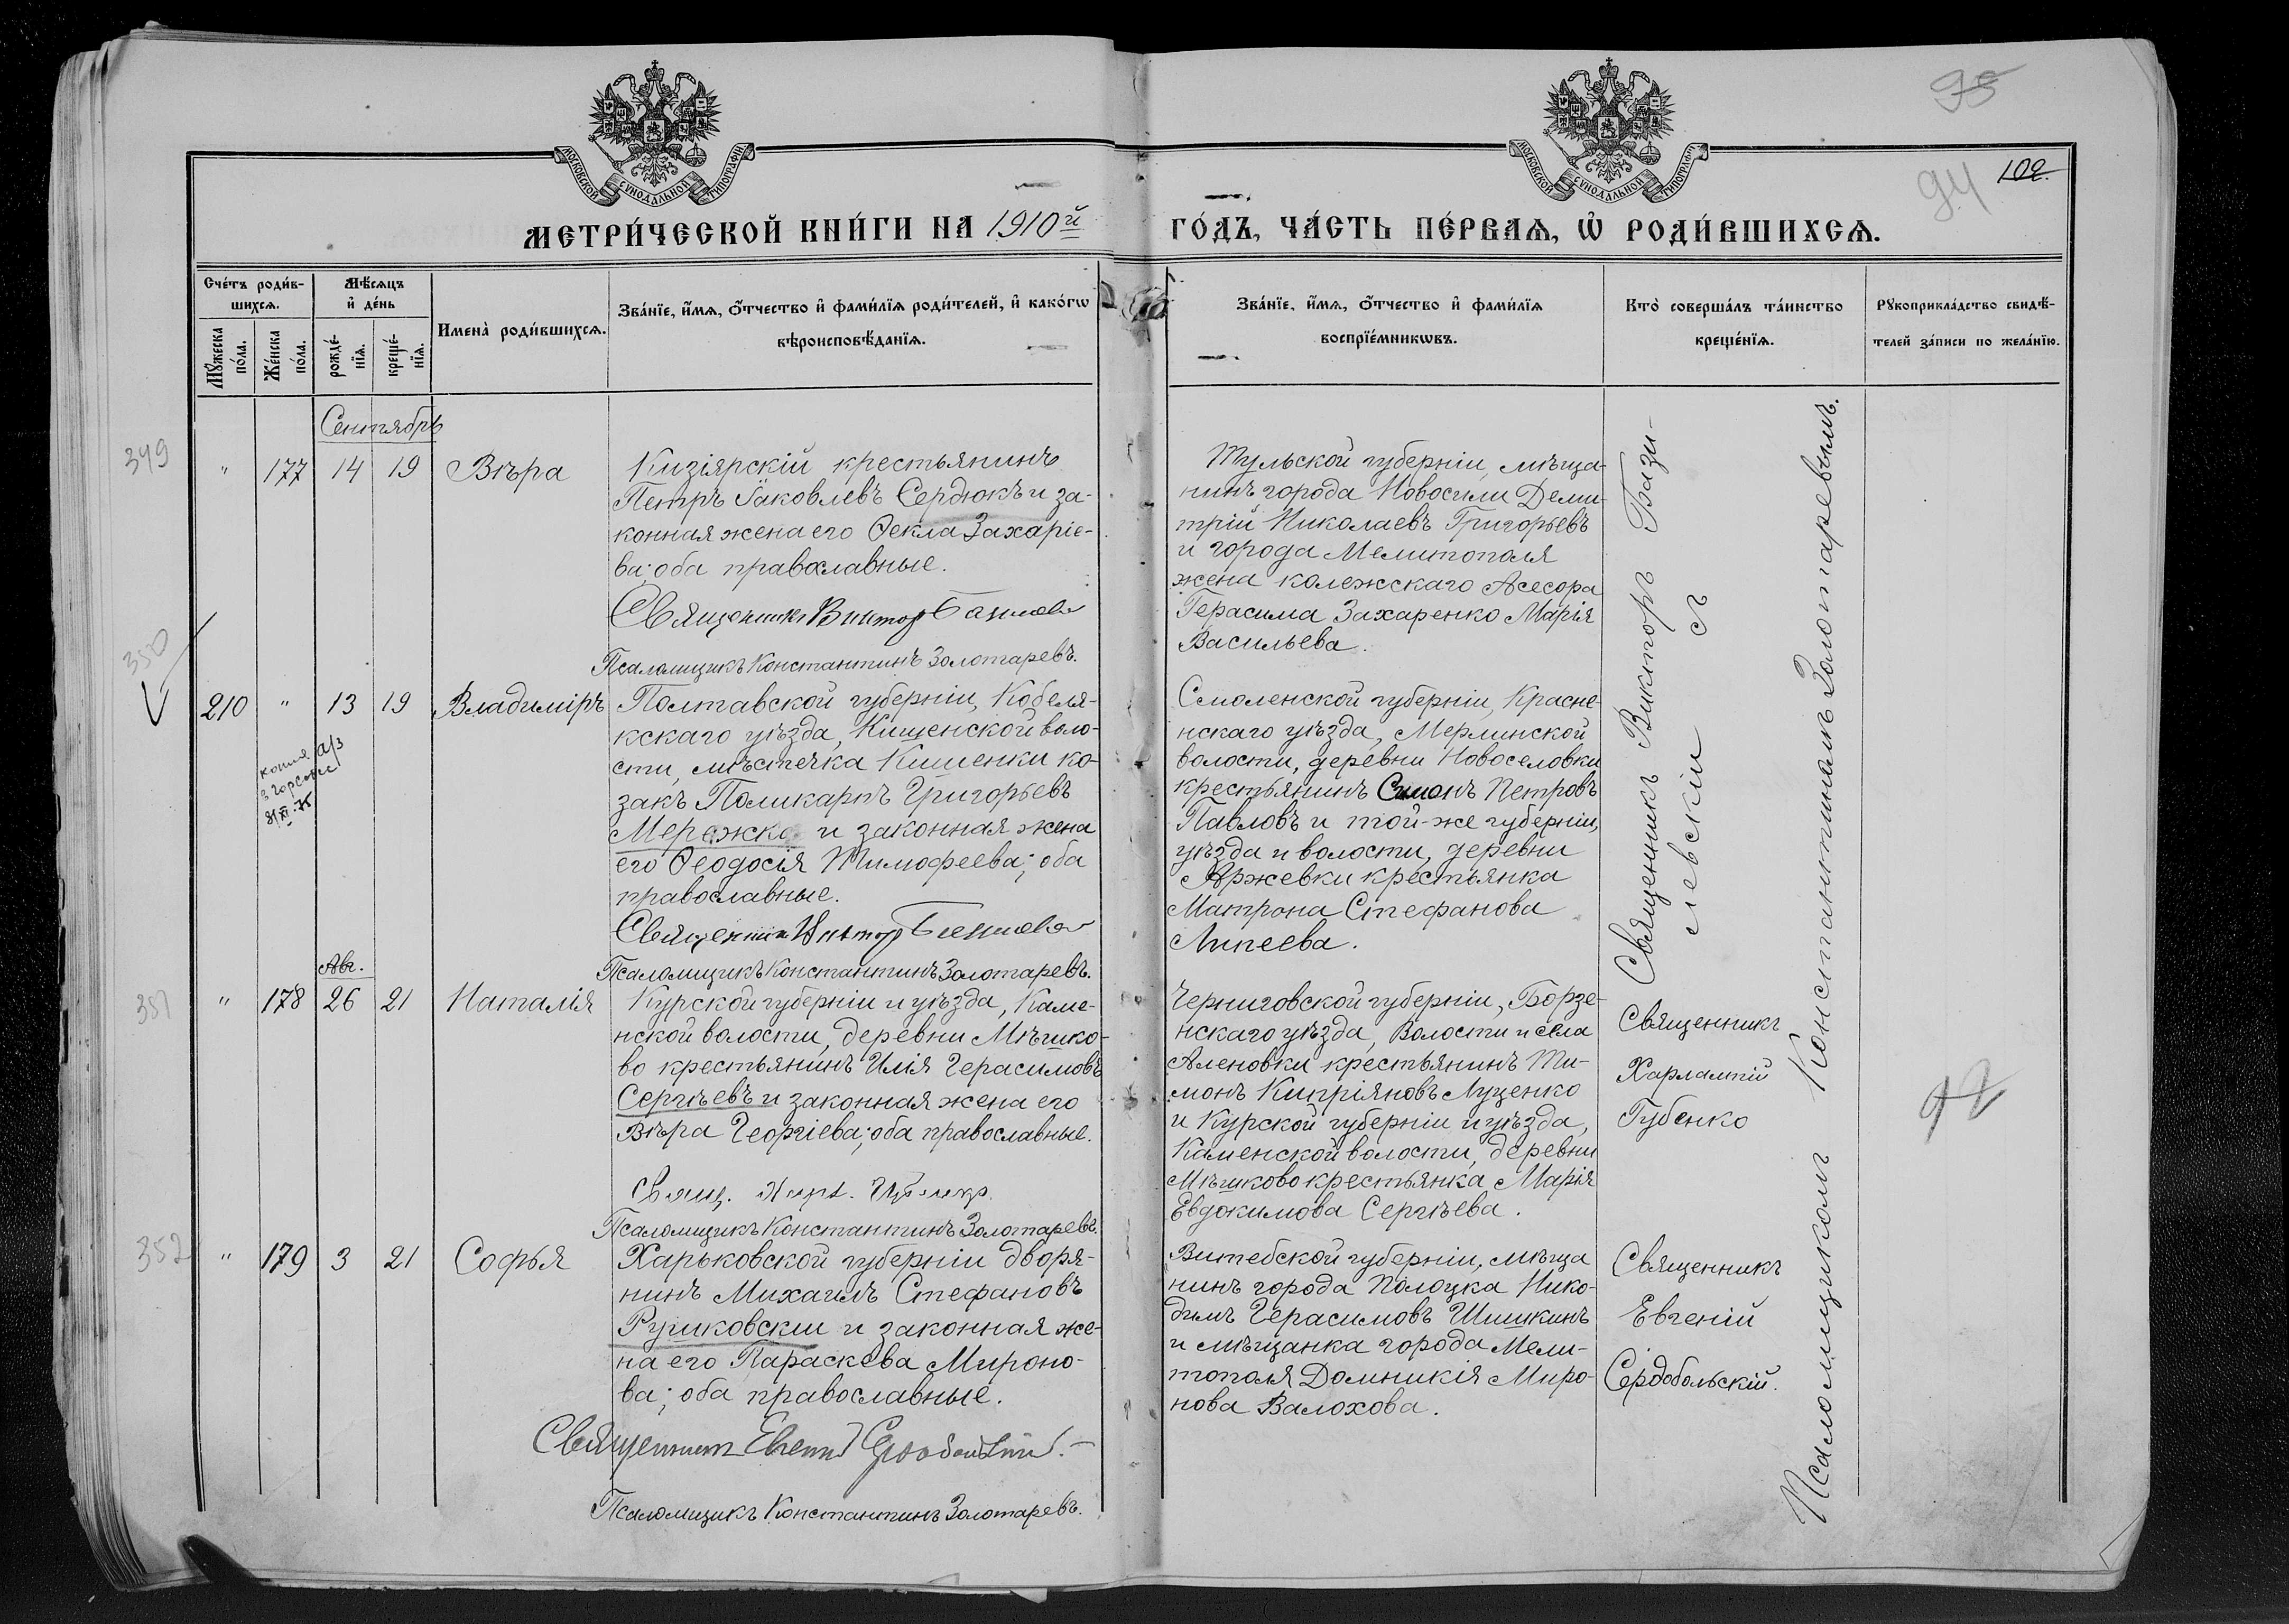 95
94
102.
МОСКОВСКОЙ СѴНОДАЛЬНОЙ ТИПОГРАФІИ
МОСКОВСКОЙ СѴНОДАЛЬНОЙ ТИПОГРАФІИ
МЕТРИ́ЧЕСКОЙ КНИ́ГИ НА 1910й ГО́ДЪ, ЧА́СТЬ ПЕ́РВАѦ, Ѿ РОДИ́ВШИХСѦ.
Сче́тъ роди́в-
шихсѧ.
Мꙋ́жеска по́ла.
Же́нска по́ла.
Мѣ́сѧцъ
и҆ де́нь
рожде́-
нїѧ.
креще́-
нїѧ.
Имена̀ роди́вшихсѧ.
Зва́нїе, и҆́мѧ, ѻ҆́тчество и҆ фами́лїѧ роди́телей, и҆ како́гѡ
вѣроисповѣ́данїѧ.
Зва́нїе, и҆́мѧ, ѻ҆́тчество и҆ фами́лїѧ
воспрїе́мникѡвъ.
Кто̀ соверша́лъ та́инство
креще́нїѧ.
Рꙋкоприкла́дство свидѣ́-
телей за́писи по жела́нїю.
Сентябрь
349
" 177 14 19 Вѣра
Кизіярскій крестьянинъ
Петръ Іаковлевъ Сердюкъ и за-
конная жена его Ѳекла Захаріе-
ва; оба православные.
Священникъ Викторъ Базилев
Псаломщикъ Константинъ Золотаревъ.
Тульской губерніи, мѣща-
нинъ города Новосили Дими-
трій Николаевъ Григорьевъ
и города Мелитополя
жена колежскаго Асесора
Герасима Захаренко Марія
Васильева.
350
210 " 13 19 Владиміръ
копия а/з
в горсовет
Полтавской губерніи, Кобеля-
кскаго уѣзда, Кишенской воло-
сти, мѣстечка Кишенки ко-
закъ Поликарпъ Григорьевъ
Мережко и законная жена
его Ѳеодосія Тимофеева; оба
православные.
Священник Виктор Базилев
Псаломщикъ Константинъ Золотаревъ.
Смоленской губерніи, Красне-
нскаго уѣзда, Мерлинской
волости, деревни Новоселовки
крестьянинъ Симонъ Петровъ
Павловъ и той-же губерніи,
уѣзда и волости, деревни
Аржевки крестьянка
Матрона Стефанова
Липеева.
Священникъ Викторъ Бази-
левскій
Авг.
351
" 178 26 21 Наталія
Курской губерніи и уѣзда, Каме-
нской волости, деревни Мѣшко-
во крестьянинъ Илія Герасимовъ
Сергѣевъ и законная жена его
Вѣра Георгіева; оба православные.
Свящ. Харл. Губенко
Псаломщикъ Константинъ Золотаревъ.
Черниговской губерніи, Борзе-
нскаго уѣзда, Волости и села
Аленовки крестьянинъ Ти-
монъ Кипріяновъ Луценко
и Курской губерніи и уѣзда,
Каменской волости, деревни
Мѣшково крестьянка Марія
Евдокимова Сергѣева.
Священникъ
Харлампій
Губенко
352
" 179 3 21 Софья
Харьковской губерніи дворя-
нинъ Михаилъ Стефановъ
Рушковскій и законная же-
на его Параскева Мироно-
ва; оба православные.
Священник Евгений Сердобольский.
Псаломщикъ Константинъ Золотаревъ.
Витебской губерніи, мѣща
нинъ города Полоцка Нико-
димъ Герасимовъ Шишкинъ
и мѣщанка города Мели-
тополя Домникія Миро-
нова Валохова.
Священникъ
Евгеній
Сердобольскій.
Псаломщикомъ Константиномъ Золотаревымъ.